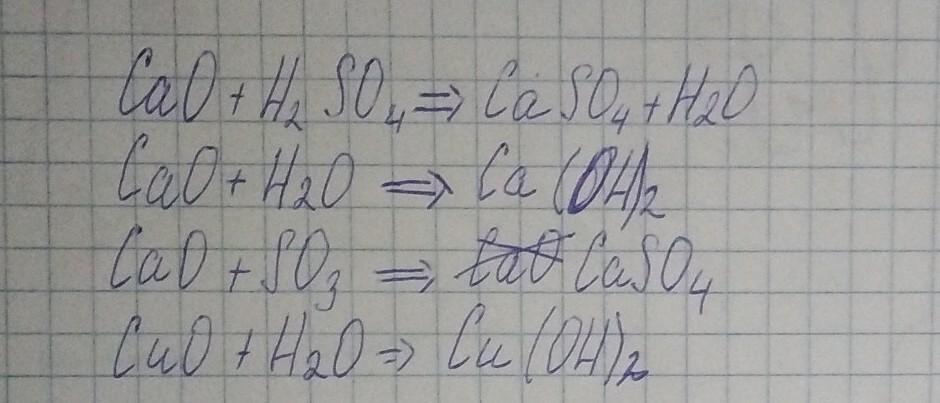 CaO + H₂SO₄ ⇒ CaSO₄ + H₂O
CaO + H₂O ⇒ Ca(OH)₂
CaO + SO₃ ⇒ ~~CaO~~ CaSO₄
CuO + H₂O ⇒ Cu(OH)₂